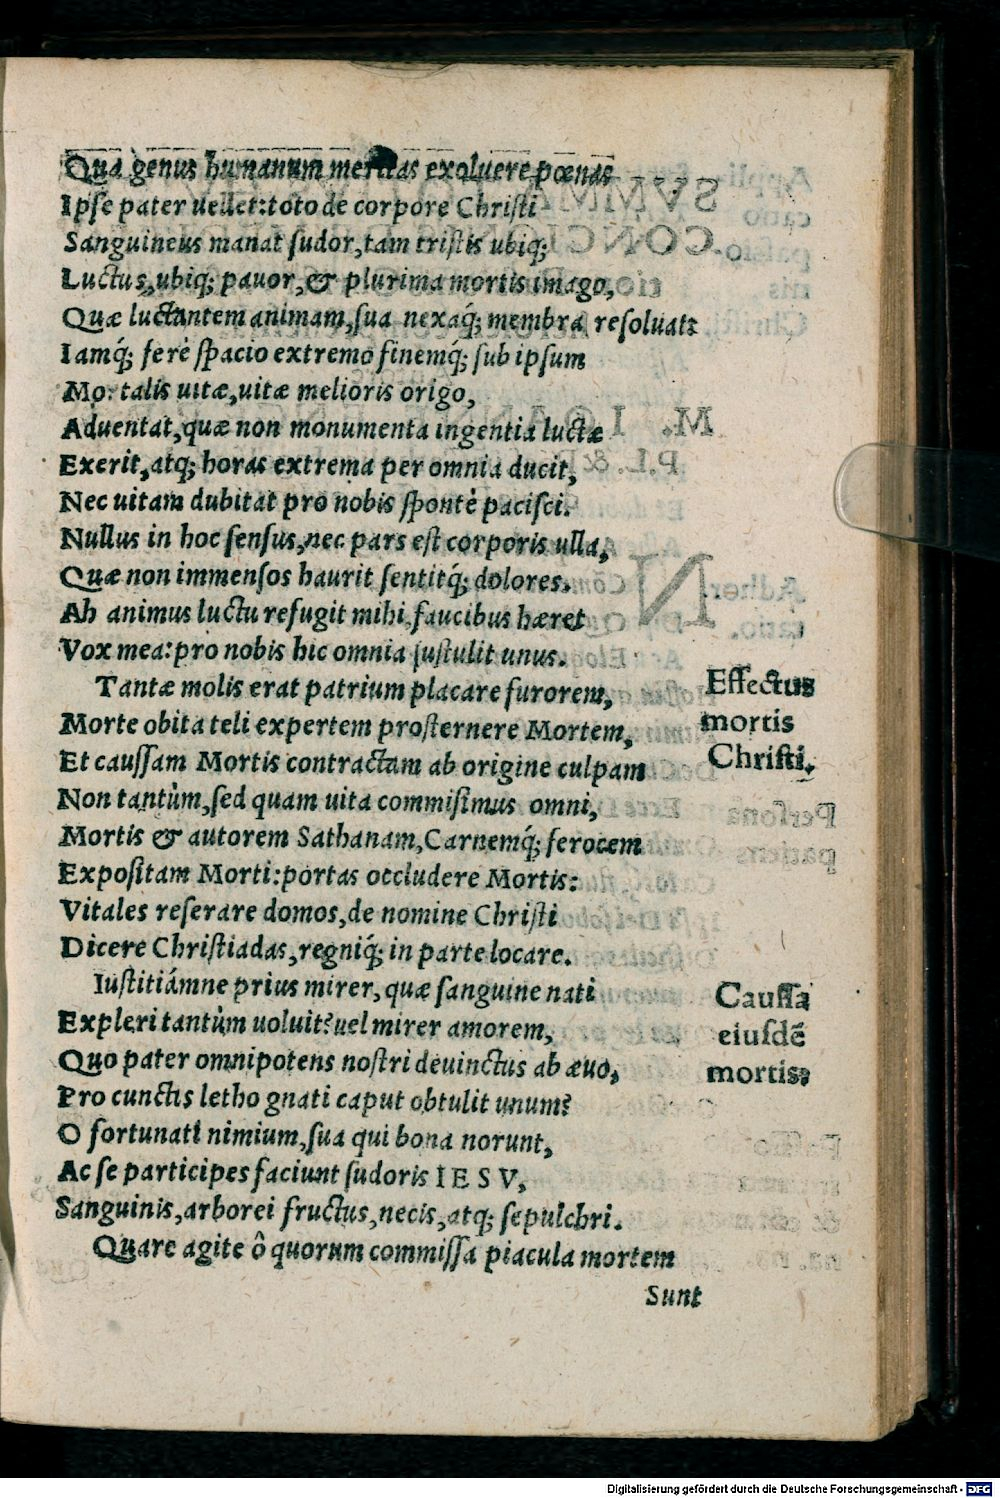 Qua genus humanum meritas exoluere pœnas
Ipſe pater uellet: toto de corpore Chriſti
Sanguineus manat ſudor, tam triſtis ubiq;
Luctus, ubiq; pauor, & plurima mortis imago,
Quæ luctantem animam, ſua nexaq́; membra reſoluat:
Iamq́; ferè ſpacio extremo finemq́; ſub ipſum
Mortalis uitæ, uitæ melioris origo,
Aduentat, quæ non monumenta ingentia luctæ
Exerit, atq; horas extrema per omnia ducit,
Nec uitam dubitat pro nobis ſpontè paciſci.
Nullus in hoc ſenſus, nec pars eſt corporis ulla,
Quæ non immenſos haurit ſentitq́; dolores.
Ah animus luctu refugit mihi, faucibus hæret
Vox mea: pro nobis hic omnia ſuſtulit unus.
Tantæ molis erat patrium placare furorem,
Morte obita teli expertem proſternere Mortem,
Et cauſſam Mortis contractam ab origine culpam
Non tantùm, ſed quam uita commiſimus omni,
Mortis & autorem Sathanam, Carnemq́; ferocem
Expoſitam Morti: portas occludere Mortis:
Vitales reſerare domos, de nomine Chriſti
Dicere Chriſtiadas, regniq́; in parte locare.
Iuſtitiámne prius mirer, quæ ſanguine nati
Expleri tantùm uoluit? uel mirer amorem,
Quo pater omnipotens noſtri deuinctus ab æuo,
Pro cunctis letho gnati caput obtulit unum?
O fortunati nimium, ſua qui bona norunt,
Ac ſe participes faciunt ſudoris IESV,
Sanguinis, arborei fructus, necis, atq; ſepulchri.
Quare agite ô quorum commiſſa piacula mortem
Sunt
Effectus
mortis
Chriſti.
Cauſſa
eiuſdẽ
mortis.
Digitalisierung gefördert durch die Deutsche Forschungsgemeinschaft - DFG